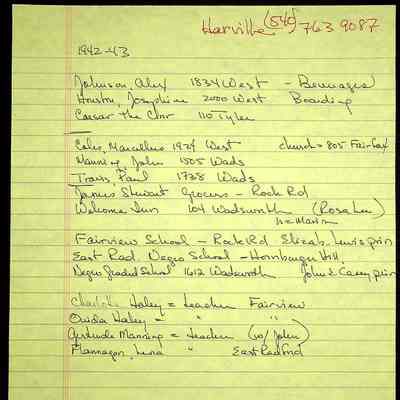 Harville (540) 763 9087
1942-43
Johnson, Alex 1834 West - Beverages
Houston, Josephine 2000 West Boarding
Caesar the Conr 110 Tyler
Coles, Marcellus 1974 West church = 805 Fairfax
Manning, John 1505 Wads
Travis Paul 1738 Wads
James Stewart Grocers - Rock Rd
Welcome Inn 104 Wadsworth (Rosa Lee)
Fairview School - Rock Rd Elizab. Lewis prin
East Rad. Negro School - Hornbarger Hill,
Negro Graded School 1612 Wadsworth John L Casey prin
Charlotte Haley = teacher Fairview
Ovidia Haley = " "
Gertrude Manning = teacher (w/ John)
Flannagan, Lena " East Radford